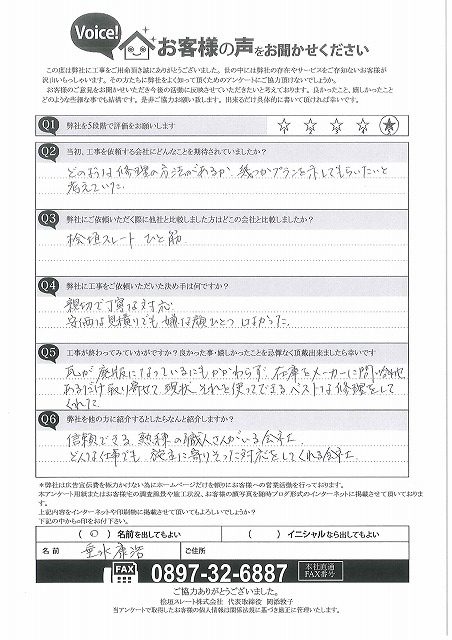 Voice!
お客様の声をお聞かせください
この度は弊社に工事をご用命頂き誠にありがとうございました。世の中には弊社の存在やサービスをご存知ないお客様が
沢山いらっしゃいます。その方たちに弊社をよく知って頂くためのアンケートにご協力頂けないでしょうか。
お客様のご意見をお聞かせいただき今後の活動に反映させていただきたいと考えております。良かったこと、嬉しかったこと
どのような些細な事でも結構です。是非ご協力お願い致します。出来るだけ具体的に書いて頂ければ幸いです。
Q1 弊社を5段階で評価をお願いします
Q2 当初、工事を依頼する会社にどんなことを期待されていましたか?
どのような修理の方法があるか、幾つかプランを示してもらいたいと
考えていた。
Q3 弊社にご依頼いただく際に他社と比較しました方はどこの会社と比較しましたか?
桧垣スレート ひと筋
Q4 弊社に工事をご依頼いただいた決め手は何ですか?
親切で丁寧な対応
安価な見積りでも嫌な顔ひとつ しなかった.
Q5 工事が終わってみていかがですか?良かった事・嬉しかったことを忌憚なく頂戴出来ましたら幸いです
瓦が廃版になっているにもかかわらず、在庫をメーカーに問い合わせ
あるだけ取り寄せて、現状、それを使ってできるベストな修理をして
くれた。
Q6 弊社を他の方に紹介するとしたらなんと紹介しますか?
信頼できる、熟練の職人さんがいる会社.
どんな仕事でも 施主に寄りそった対応をしてくれる会社.
*弊社は広告宣伝費を極力かけない為にホームページだけを頼りにお客様への営業活動を行っております。
本アンケート用紙またはお客様宅の調査風景や施工状況、お客様の顔写真を随時ブログ形式のインターネットに掲載させて頂いております。
上記内容をインターネットや印刷物に掲載させて頂いてもよろしいでしょうか?
下記の中から○印をお付け下さい。
( ○ ) 名前を出してもよい ( ) イニシャルなら出してもよい
名 前 垂水康浩 ご住所
FAX 0897-32-6887 本社直通 FAX番号
ご協力ありがとうございました。
桧垣スレート株式会社 代表取締役 岡添敦子
当アンケートで取得したお客様の個人情報は関係法規に基づき適正に管理いたします。